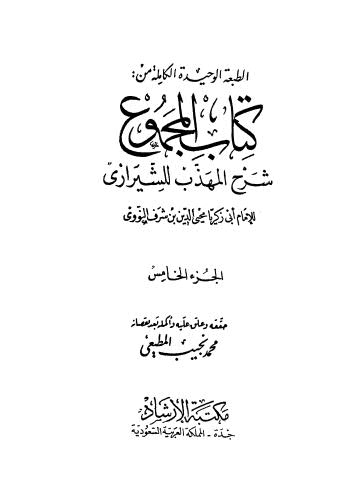 الطبعة الوحيدة الكاملة من:
كتاب المجموع
شرح المهذب للشيرازى
للإمام أبى زكريا محيى الدين بن شرف النووى
الجزء الخامس
حققه وعلق عليه وأكمله بعد نقصانه
محمد نجيب المطيعى
مكتبة الإرشاد
جدة - المملكة العربية السعودية